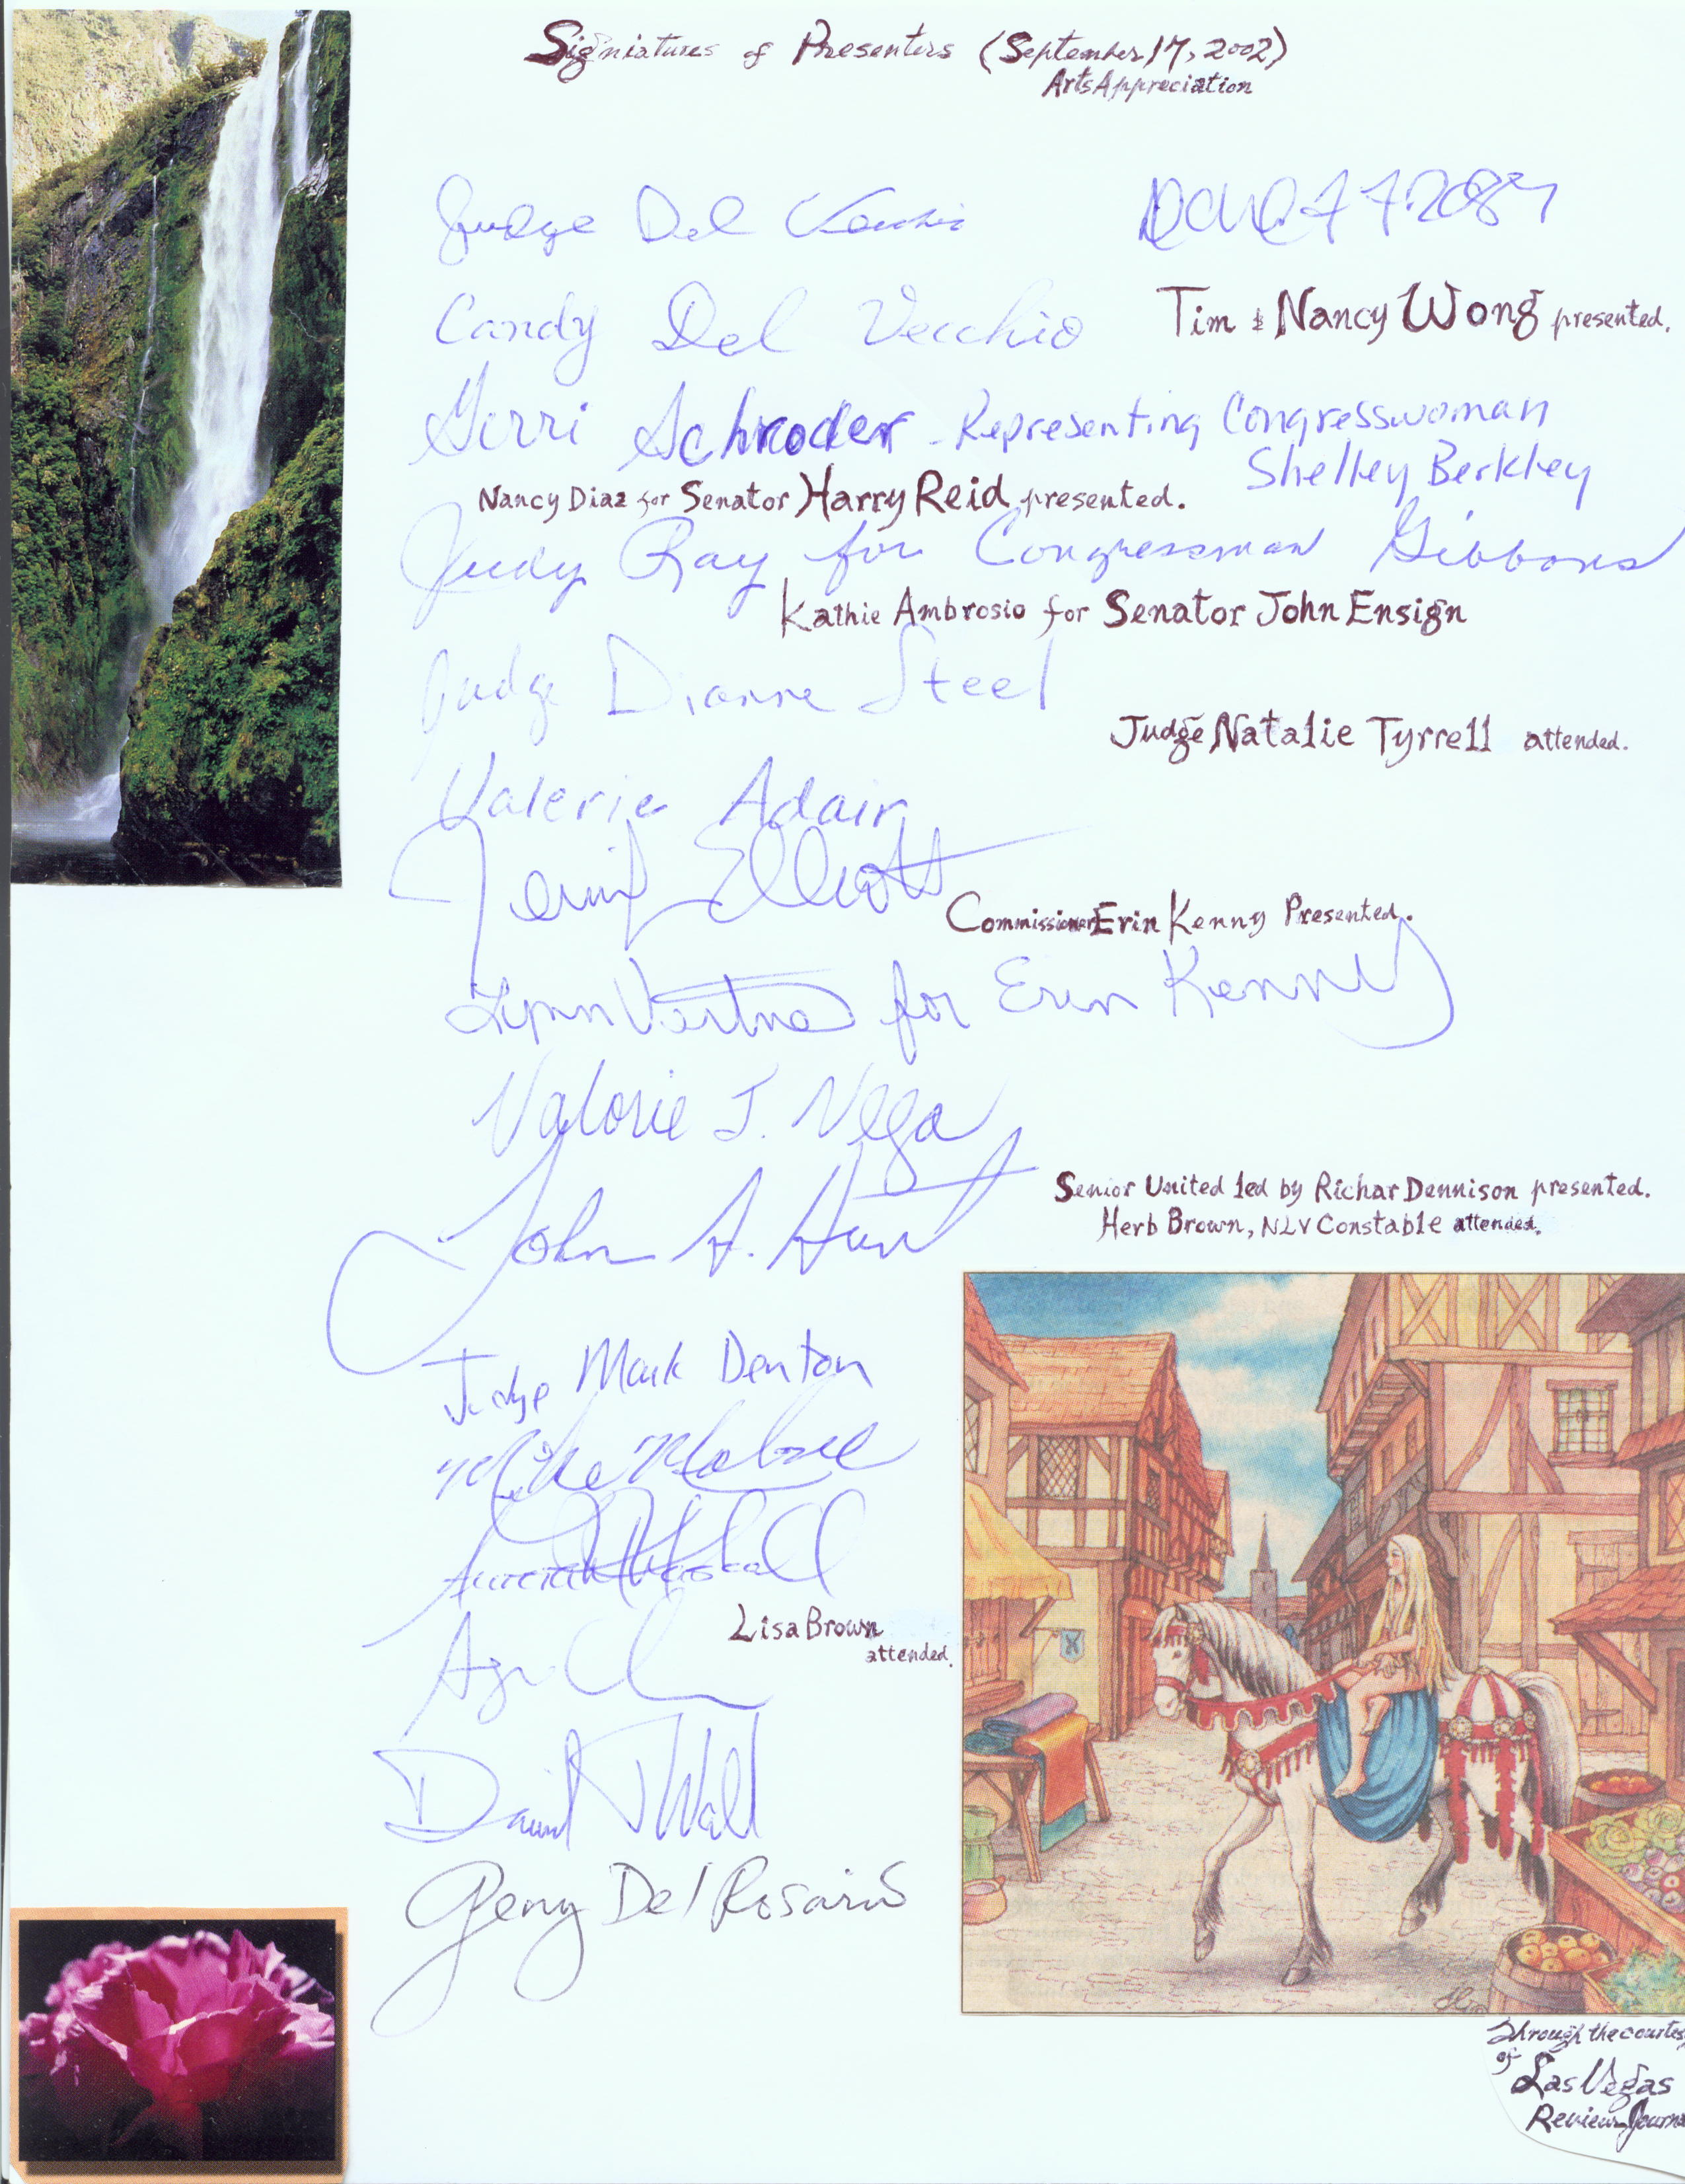 Signiatures of Presenters (September 17, 2002)
Arts Appreciation
Judge Del Vecchio
Candy Del Vecchio
Tim & Nancy Wong presented.
Gerri Schroder - Representing Congresswoman
Shelley Berkley
Nancy Diaz for Senator Harry Reid presented.
Judy Ray for Congressman Gibbons
Kathie Ambrosio for Senator John Ensign
Judge Dianne Steel
Judge Natalie Tyrrell attended.
Valerie Adair
Jennifer Elliott
Commissioner Erin Kenny Presented.
Lynn for Erin Kenny
Valorie J. Vega
John A. Hunt
Senior United led by Richar Dennison presented.
Herb Brown, NLV Constable attended.
Judge Mark Denton
Mike
Lisa Brown
attended.
David Wall
Geny Del Rosario
Through the
of
Las Vegas
Review Journa